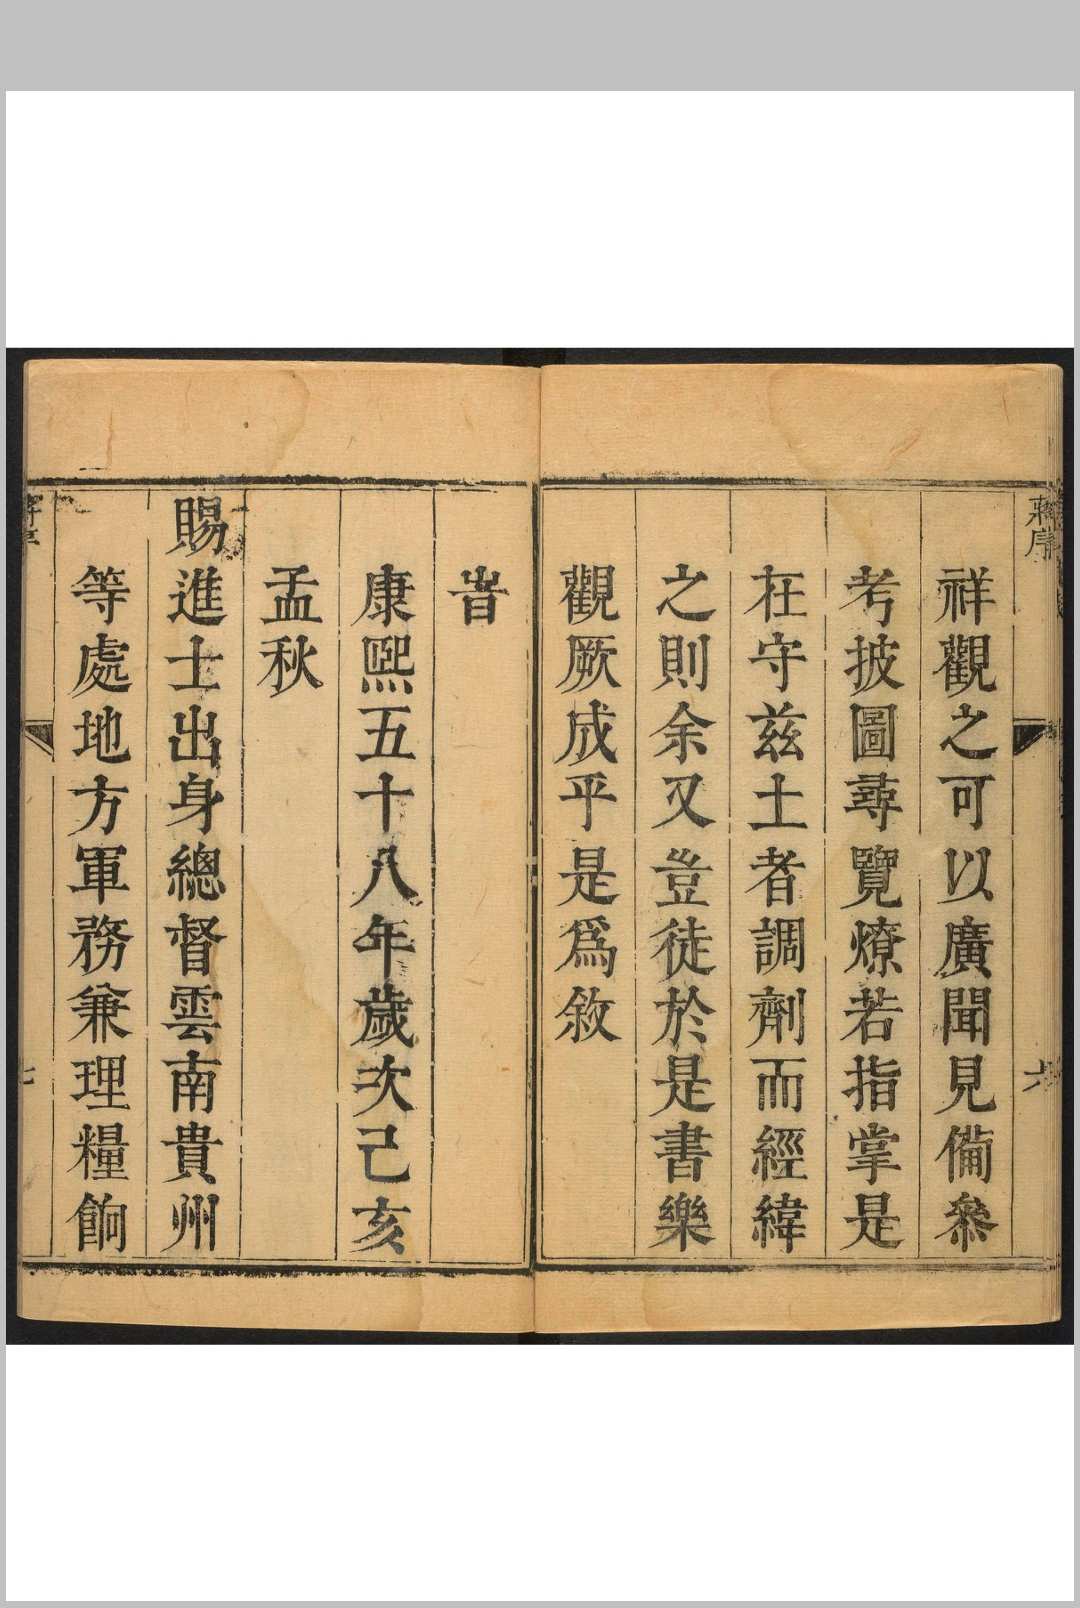 蔣序
六
祥觀之可以廣聞見備參
考披圖尋覽燎若指掌是
在守兹土者調劑而經緯
之則余又豈徒於是書樂
觀厥成乎是爲敘
旹
康熙五十八年歲次己亥
孟秋
賜進士出身總督雲南貴州
等處地方軍務兼理糧餉